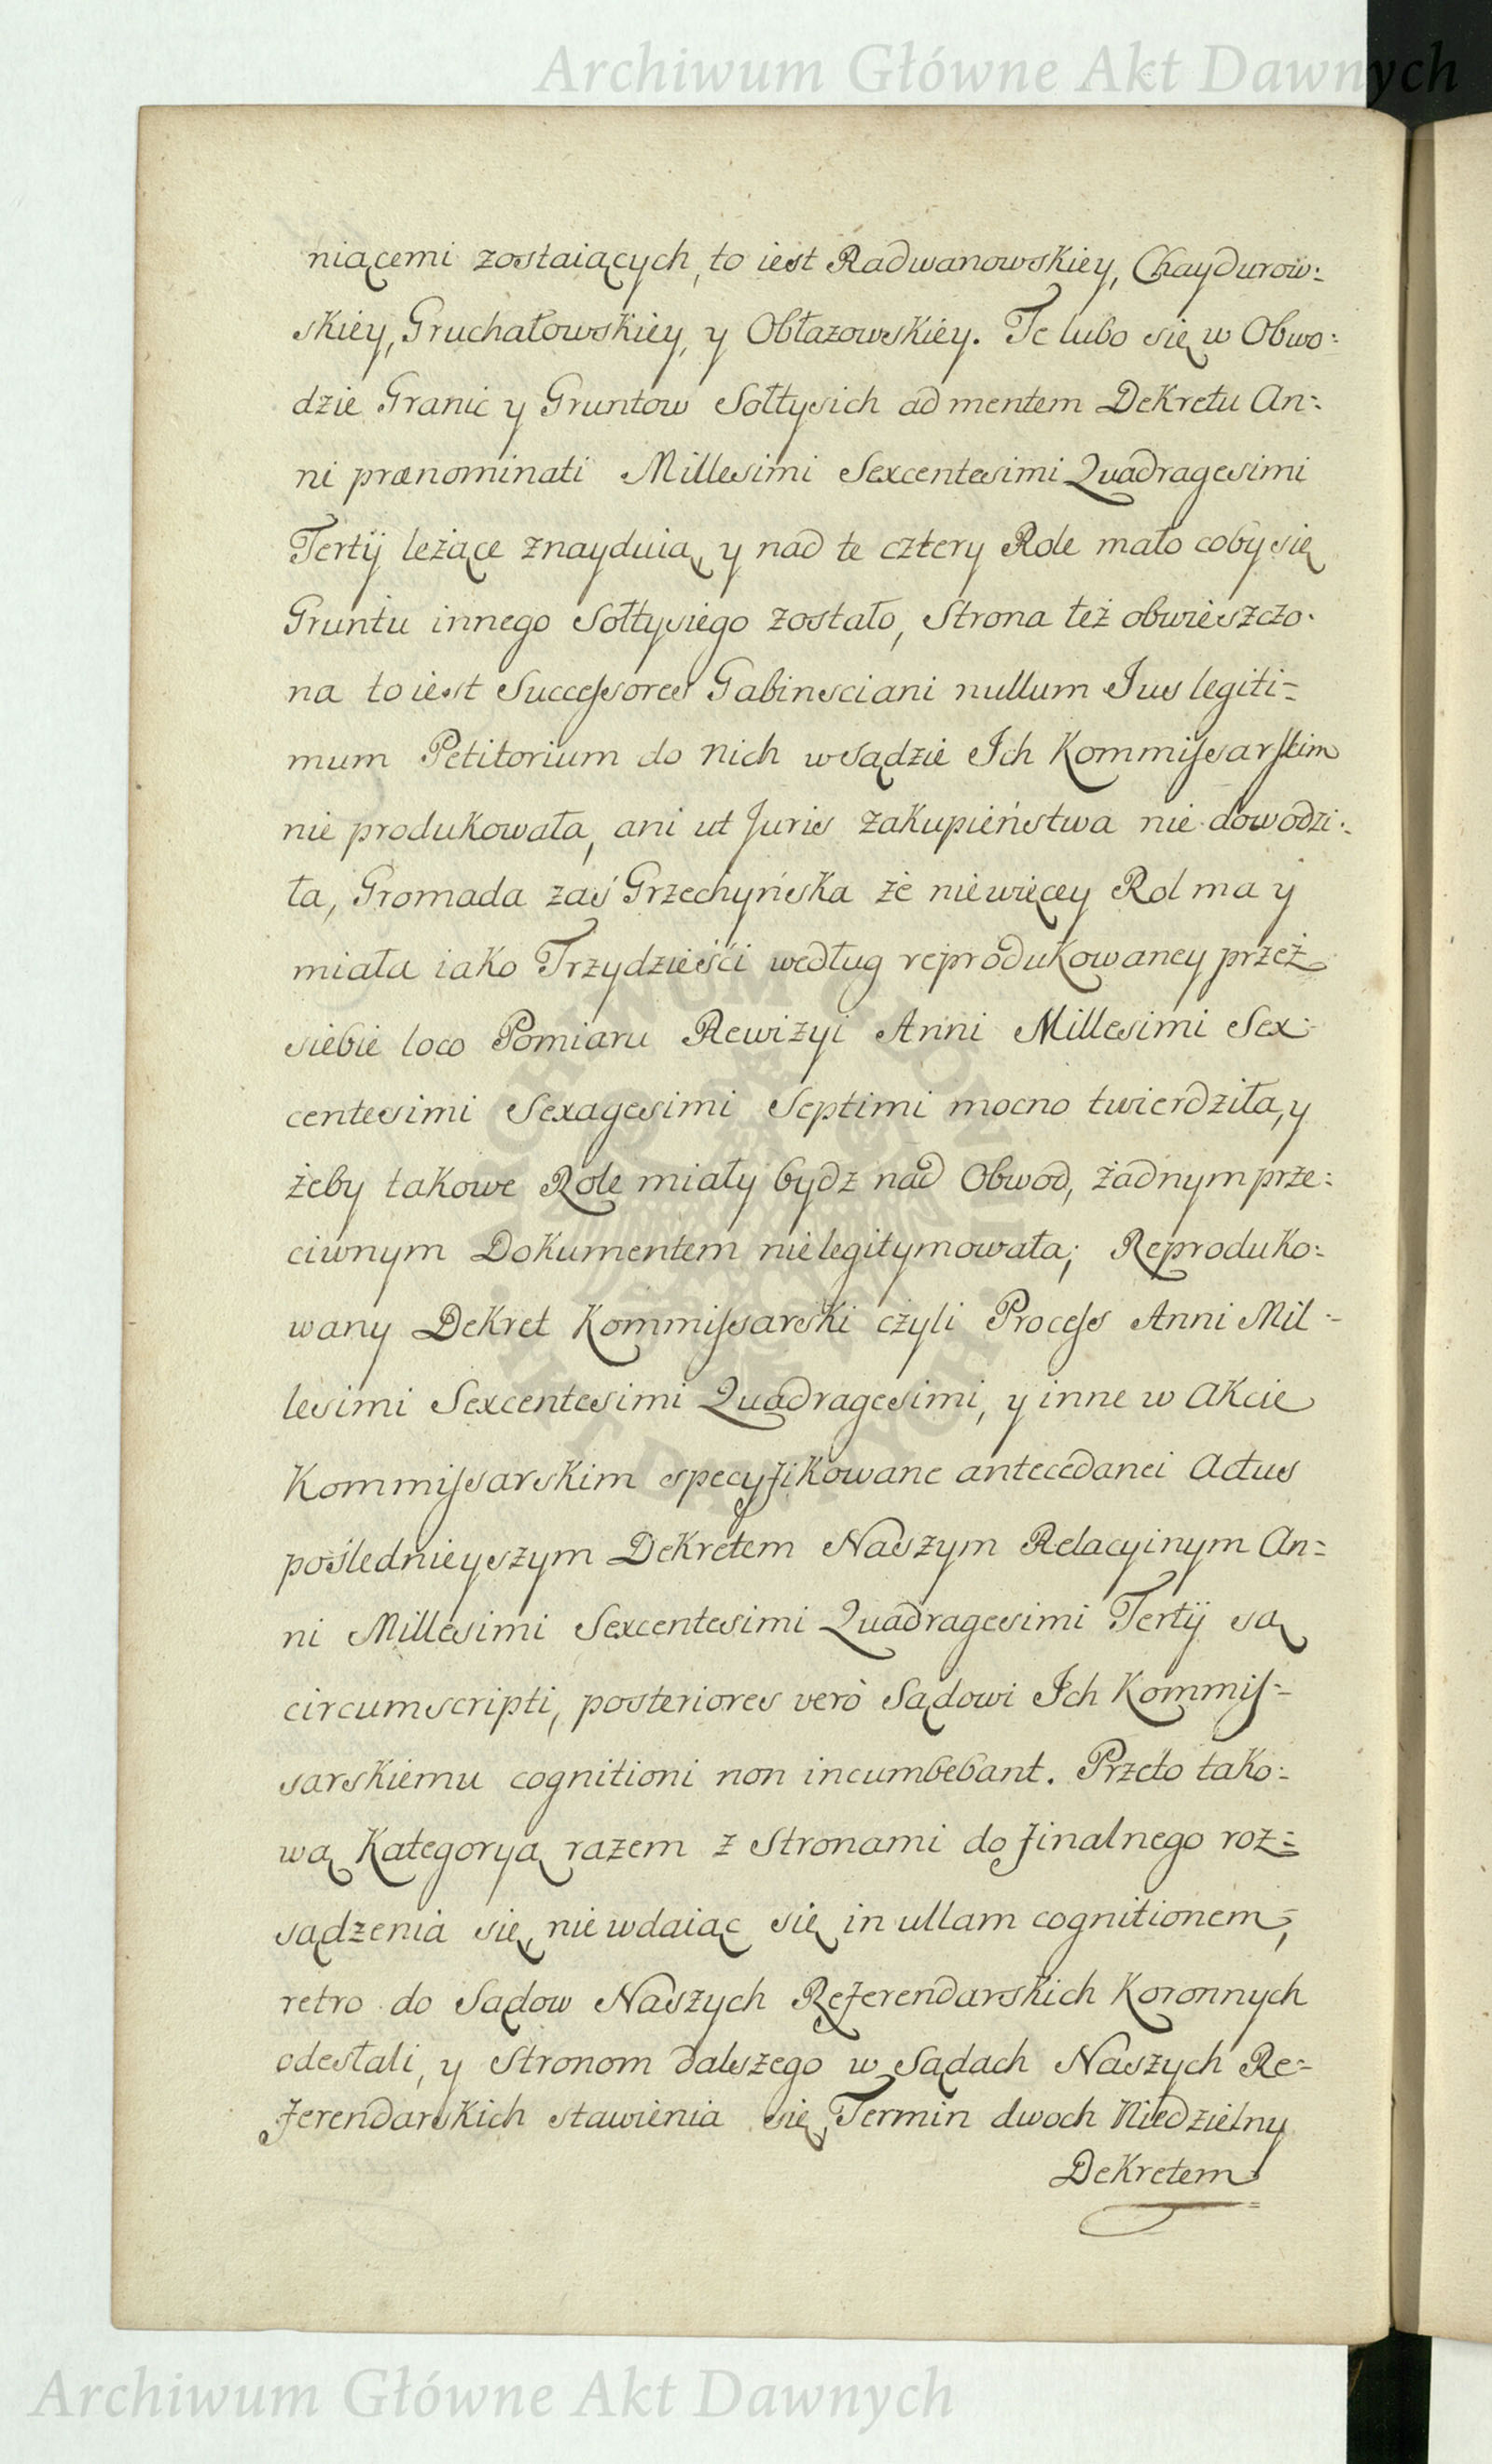 Archiwum Główne Akt Dawnych
niącemi zostaiących, to iest Radwanowskiey, Chaydurow:
skiey, Gruchałowskiey, y Obłazowskiey. Te lubo się w Obwo:
dzie Granic y Gruntow Sołtysich ad mentem Dekretu An:
ni prænominati Millesimi Sexcentesimi Quadragesimi
Tertij leżące znayduią, y nad te cztery Role mało coby się
Gruntu innego Sołtysiego zostało, Strona też obwieszczo:
na to iest Successores Gabinsciani nullum Jus legiti=
mum Petitorium do nich w Sądzie Ich Kommissarskim
nie produkowała, ani ut Juris zakupieństwa nie dowodzi:
ła, Gromada zaś Grzechyńska że niewięcey Rol ma y
miała iako Trzydzieści według reprodukowaney przez
siebie loco Pomiaru Rewizyi Anni Millesimi Sex:
centesimi Sexagesimi Septimi mocno twierdziła, y
żeby takowe Role miały bydz nad Obwod, żadnym prze:
ciwnym Dokumentem nielegitymowała; Reproduko:
wany Dekret Kommissarski czyli Process Anni Mil:
lesimi Sexcentesimi Quadragesimi, y inne w Akcie
Kommissarskim specyfikowane antecedanei Actus
pośledniejszym Dekretem Naszym Relacyinym An=
ni Millesimi Sexcentesimi Quadragesimi Tertij są
circumscripti, posteriores verò Sądowi Ich Kommis=
sarskiemu cognitioni non incumbebant. Przeto tako:
wą Kategoryą razem z Stronami do finalnego roz=
sądzenia się, niewdaiąc się in ullam cognitionem,
retro do Sądow Naszych Referendarskich Koronnych
odesłali, y Stronom dalszego w Sądach Naszych Re=
ferendarskich stawienia się Termin dwoch Niedzielny
Dekretem
Archiwum Główne Akt Dawnych